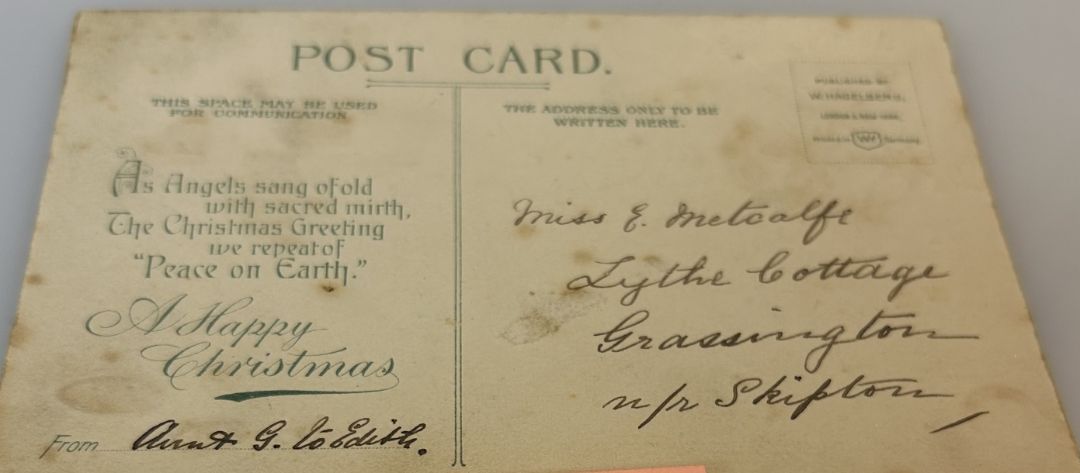 POST CARD.
THIS SPACE MAY BE USED
FOR COMMUNICATION
THE ADDRESS ONLY TO BE
WRITTEN HERE.
PUBLISHED BY
W. HAGELBERG,
LONDON & NEW YORK.
As Angels sang of old
with sacred mirth,
The Christmas Greeting
we repeat of
"Peace on Earth."
A Happy
Christmas
From Aunt G. to Edith.
Miss E. Metcalfe
Lythe Cottage
Grassington
n/r Skipton